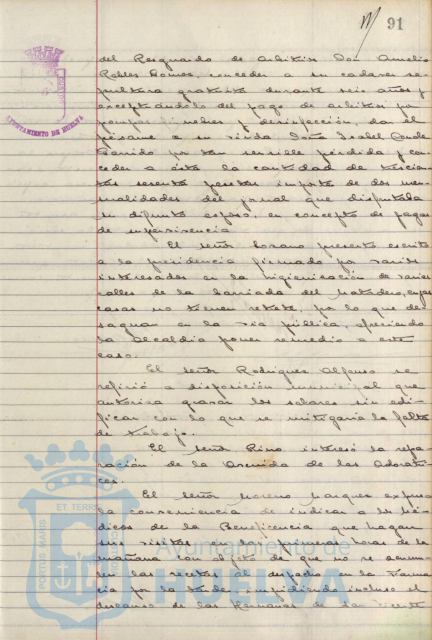 91
del Resguardo de Arbitrios Don Amelio
Robles Gomez, conceder a su cadaver se-
pultura gratuita durante seis años y
exceptandolo del pago de arbitrios por
pompas fúnebres y desinfección, dar el
pésame a su viuda Doña Isabel Conde
Garrido por tan sensible pérdida y con-
ceder a ésta la cantidad de trescien-
tas sesenta pesetas importe de dos men-
sualidades del jornal que disfrutaba
su difunto esposo, en concepto de pagas
de supervivencia
El señor Lozano presentó escrito
a la presidencia firmado por varios
interesados en la higienización de varias
calles de la barriada del Matadero, cuyas
casas no tienen retrete, por lo que de-
saguan en la vía pública, ofreciendo
la Alcaldía poner remedio a este
caso.
El señor Rodriguez Alfonso se
refirió a disposición municipal que
autoriza gravar los solares sin edi-
ficar con lo que se mitigaría la falta
de trabajo.
El señor Pino interesó la repa-
ración de la Avenida de las Adoratri-
ces.
El señor Moreno Marquez expuso
la conveniencia de indicar a los Mé-
dicos de la Beneficencia que hagan
sus visitas en las primeras horas de la
mañana con objeto de que no se acumu-
len las recetas al despacho en la Farma-
cia por la tarde, impidiendo incluso el
descanso de las Hermanas de San Vicente
AYUNTAMIENTO DE HUELVA
PORTUS MARIS ET TERRE
Ayuntamiento de
HUELVA